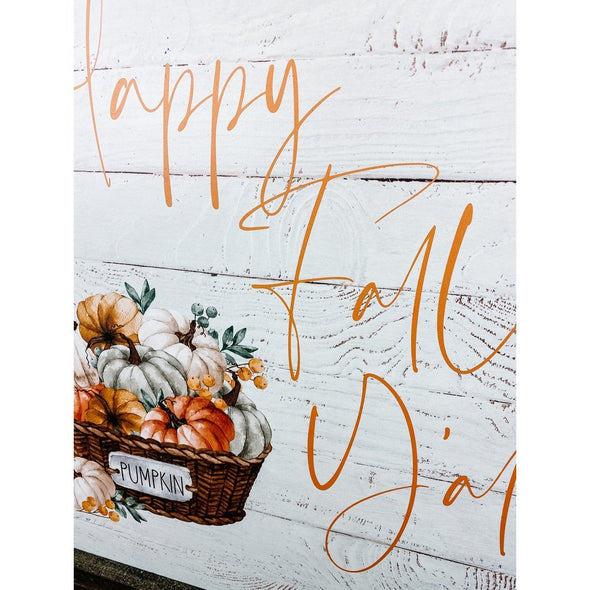 Happy
Fall
Y'all
PUMPKIN